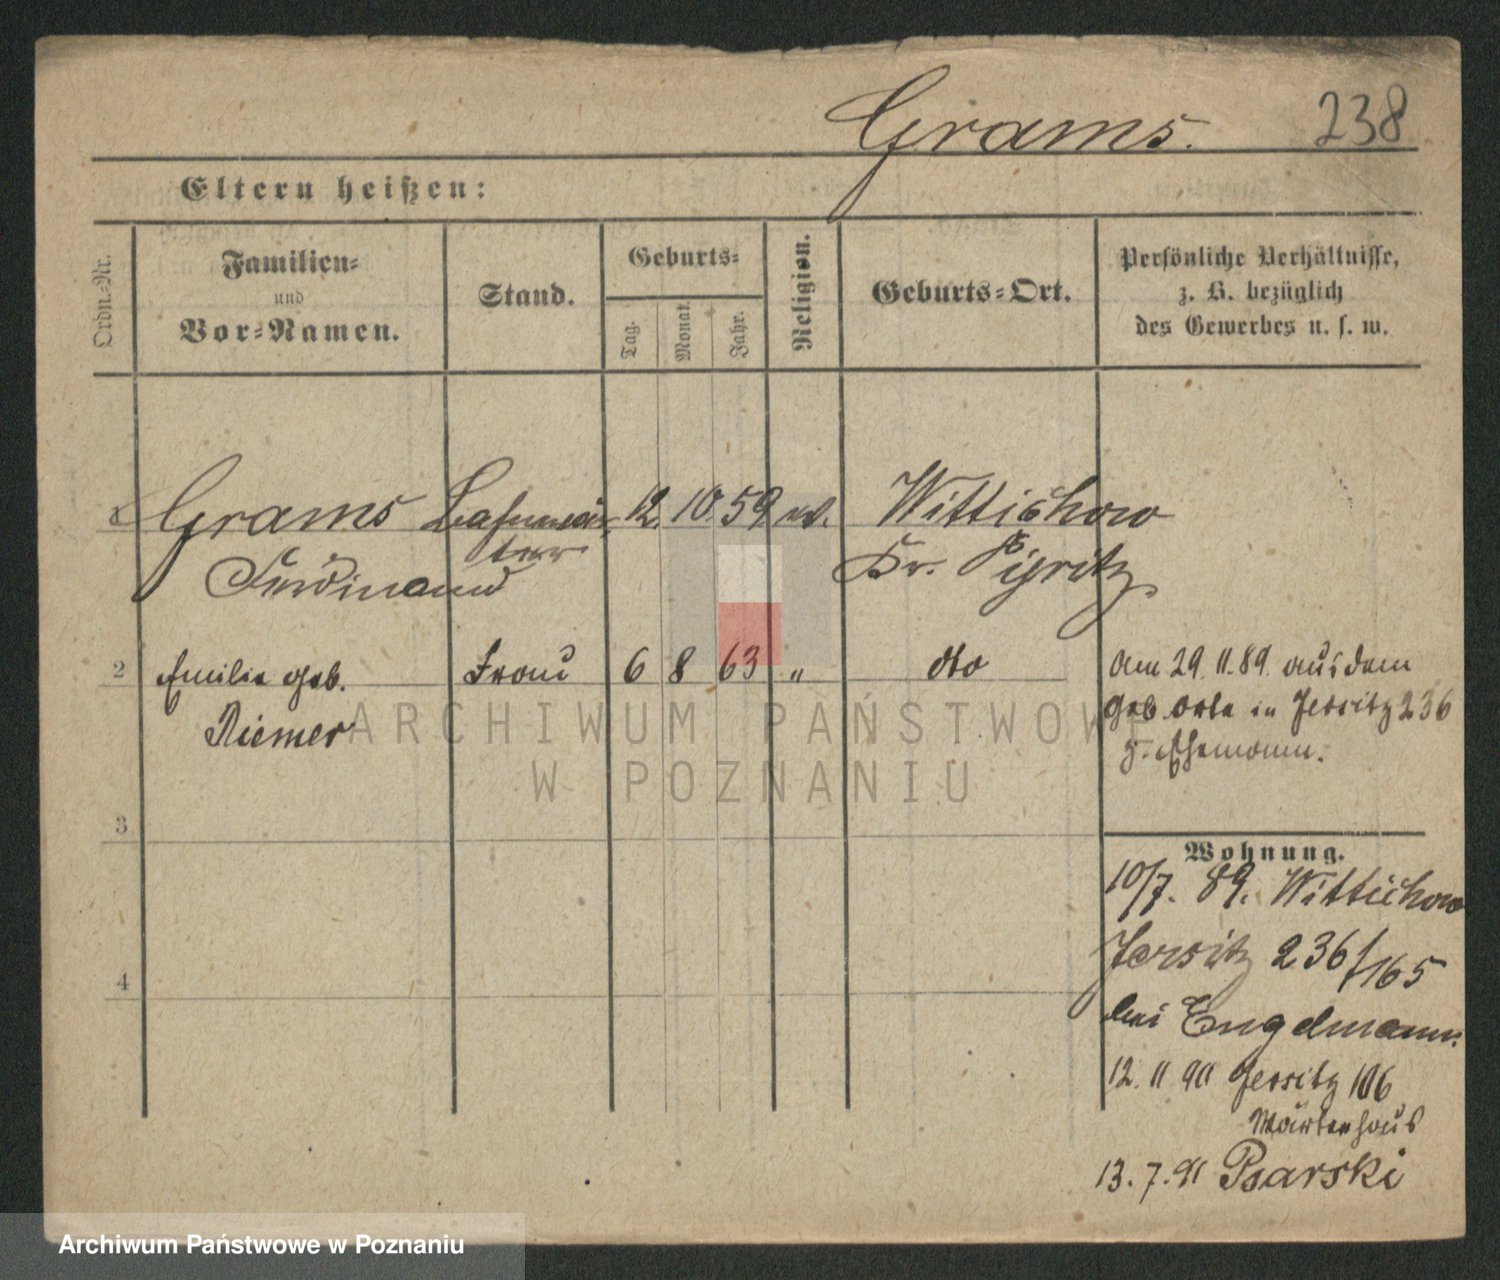 Grams. 238
Eltern heißen:
Ordn.-Nr.
Familien-
und
Vor-Namen.
Stand.
Geburts-
Tag.
Monat.
Jahr.
Religion.
Geburts-Ort.
Persönliche Verhältnisse,
z. B. bezüglich
des Gewerbes u. s. w.
Grams 12. 10. 59 ev. Wittichow
Ferdinand Kr. Pyritz
2 Emilie geb. Frau 6 8 63 " dto am 29.11.89 aus dem
Riemer geb. Orte in Jersitz 236
z. Ehemann.
3
Wohnung.
10/7. 89. Wittichow
4 Jersitz 236/165
bei Engelmann.
12. 11 90 Jersitz 106
Wärterhaus
13. 7. 91 Psarski
ARCHIWUM PAŃSTWOWE
W POZNANIU
Archiwum Państwowe w Poznaniu